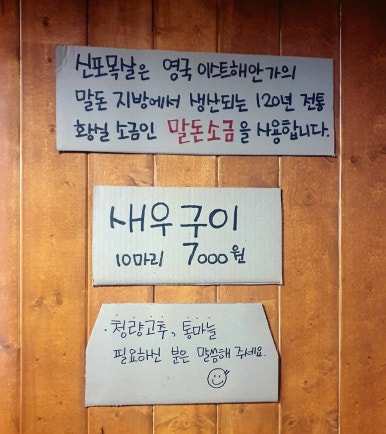 신포목살은 영국 이스트해안가의
말돈 지방에서 생산되는 120년 전통
황실 소금인 말돈소금을 사용합니다.
새우구이
10마리 7000원
· 청량고추, 통마늘
필요하신 분은 말씀해 주세요.